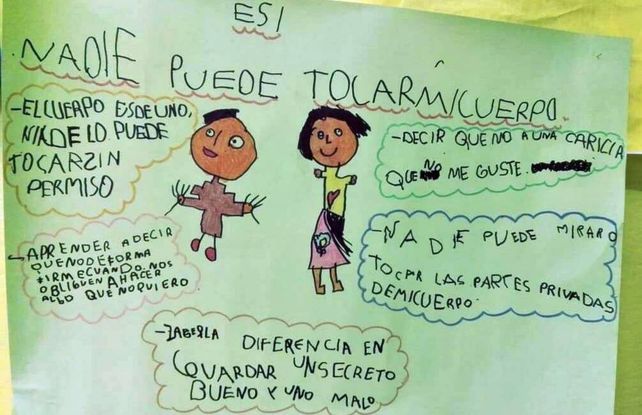 ESI
NADIE PUEDE TOCARMICUERPO.
-ELCUERPO ESDEUNO,
NIADELO PUEDE
TOCARZIN
PERMISO
-DECIR QUENO A UNA CARICIA
QUE NO ME GUSTE.
-APRENDER A DECIR
QUENODEFORMA
FIRMECUANDO NOS
OBLIGUEN AHACER
ALGO QUENOQUIERO
-NADIE PUEDE MIRARO
TOCAR LAS PARTES PRIVADAS
DEMICUERPO.
-ZABERLA DIFERENCIA EN
GUARDAR UNSECRETO
BUENO Y UNO MALO